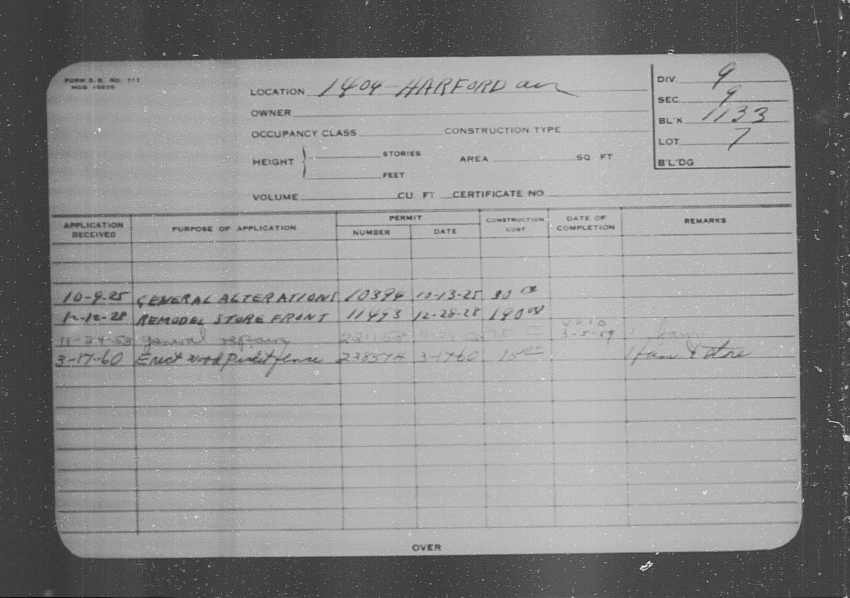 FORM S. B. No. 111
LOCATION 1404 - HARFORD ave
OWNER
OCCUPANCY CLASS CONSTRUCTION TYPE
HEIGHT STORIES AREA SQ FT
FEET
VOLUME CU FT CERTIFICATE NO
DIV. 9
SEC 9
BL'K 1133
LOT 7
B'L'DG
APPLICATION RECEIVED PURPOSE OF APPLICATION PERMIT NUMBER DATE CONSTRUCTION COST DATE OF COMPLETION REMARKS
10-9-25 GENERAL ALTERATIONS 10394 10-13-25 30
12-12-28 REMODEL STORE FRONT 11493 12-28-28 190
general repairs VOID 3-5-59 1 fam
3-17-60 Erect wood picket fence 23857A 3-17-60 15 1 fam & store
OVER